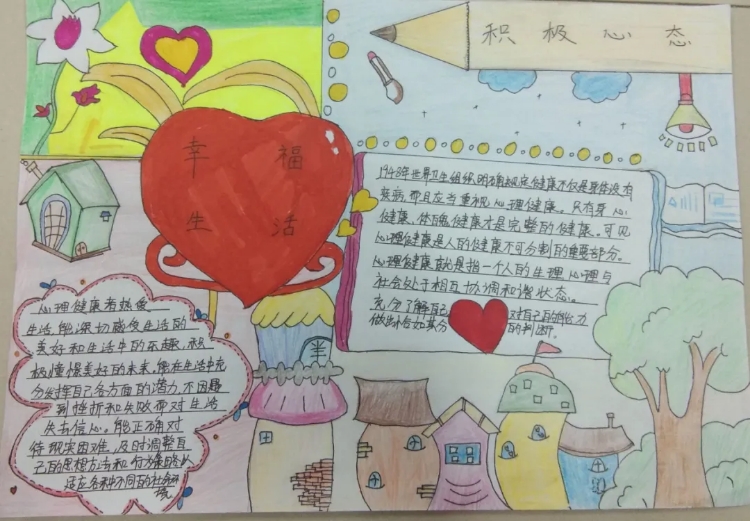 积极心态
幸福
生活
1948年世界卫生组织明确规定健康不仅是身体没有
疾病,而且应当重视心理健康。只有身心
健康、体魄健康才是完整的健康。可见
心理健康是人的健康不可分割的重要部分。
心理健康就是指一个人的生理、心理与
社会处于相互协调和谐状态。
充分了解自己 对自己的能力
做出恰如其分 的判断。
心理健康者热爱
生活,能深切感受生活的
美好和生活中的乐趣,积
极憧憬美好的未来,能在生活中充
分发挥自己各方面的潜力,不因遇
到挫折和失败而对生活
失去信心。能正确对
待现实困难,及时调整自
己的思想方法和行为
适应各种不同的社会环
境